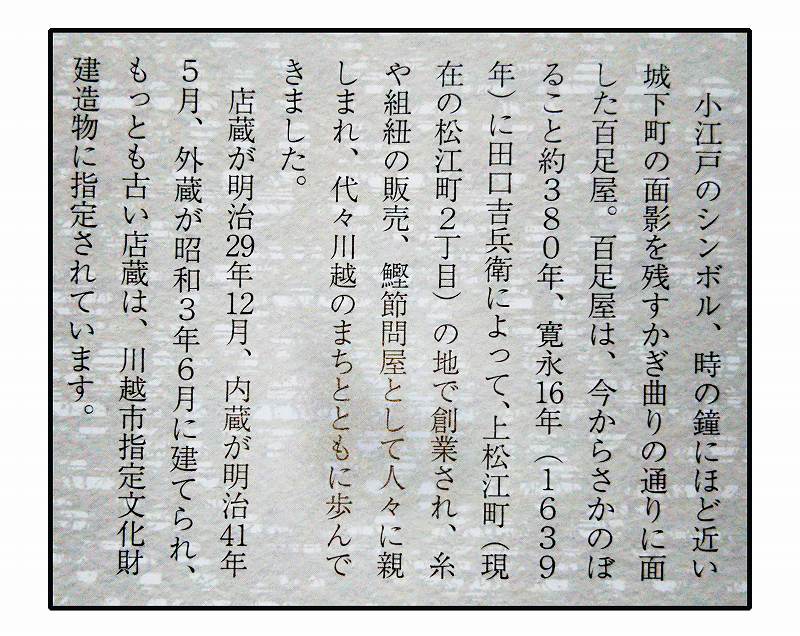 小江戸のシンボル、時の鐘にほど近い
城下町の面影を残すかぎ曲りの通りに面
した百足屋。百足屋は、今からさかのぼ
ること約380年、寛永16年（1639
年）に田口吉兵衛によって、上松江町（現
在の松江町2丁目）の地で創業され、糸
や組紐の販売、鰹節問屋として人々に親
しまれ、代々川越のまちとともに歩んで
きました。
店蔵が明治29年12月、内蔵が明治41年
5月、外蔵が昭和3年6月に建てられ、
もっとも古い店蔵は、川越市指定文化財
建造物に指定されています。